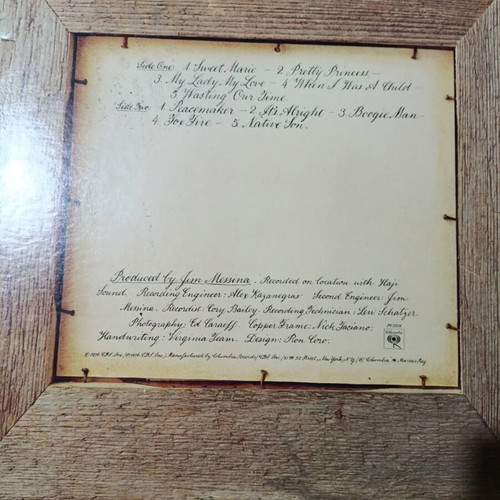 Side One 1. Sweet Marie - 2. Pretty Princess -
3. My Lady, My Love - 4 When I Was A Child -
5. Wasting Our Time.
Side Two: 1. Peacemaker - 2. It's Alright - 3. Boogie Man -
4. Fox Fire - 5. Native Son.
Produced by Jim Messina. Recorded on location with Haji
Sound. Recording Engineer: Alex Kazanegras Second Engineer: Jim
Messina. Recordist Cory Bailey Recording Technician: Lew Schatzer.
Photography: Ed Caraeff Copper Frame: Nick Faciano.
Handwriting: Virginia Team. Design: Ron Coro.
© 1976 CBS Inc./ 1976 CBS Inc./ Manufactured by Columbia Records/CBS Inc./51 W 52 Street, New York, N.Y./ Columbia Marcas Reg.